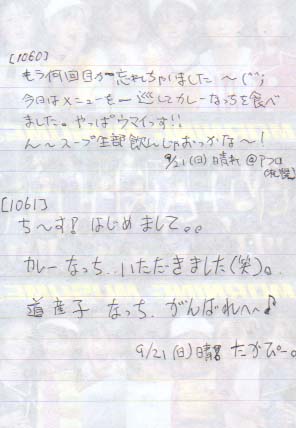 [1060]
もう何回目か忘れちゃいました〜(^^;
今日はメニューを一巡してカレーなっちを食べ
ました。やっぱウマイっす!!
ん〜スープ全部飲んじゃおっかな〜!
9/21(日)晴れ @アフロ
(札幌)
[1061]
ち〜す! はじめまして。。
カレーなっち..いただきました(笑)。
道産子 なっち. がんばれへ〜♪
9/21(日)晴 たかぴー。